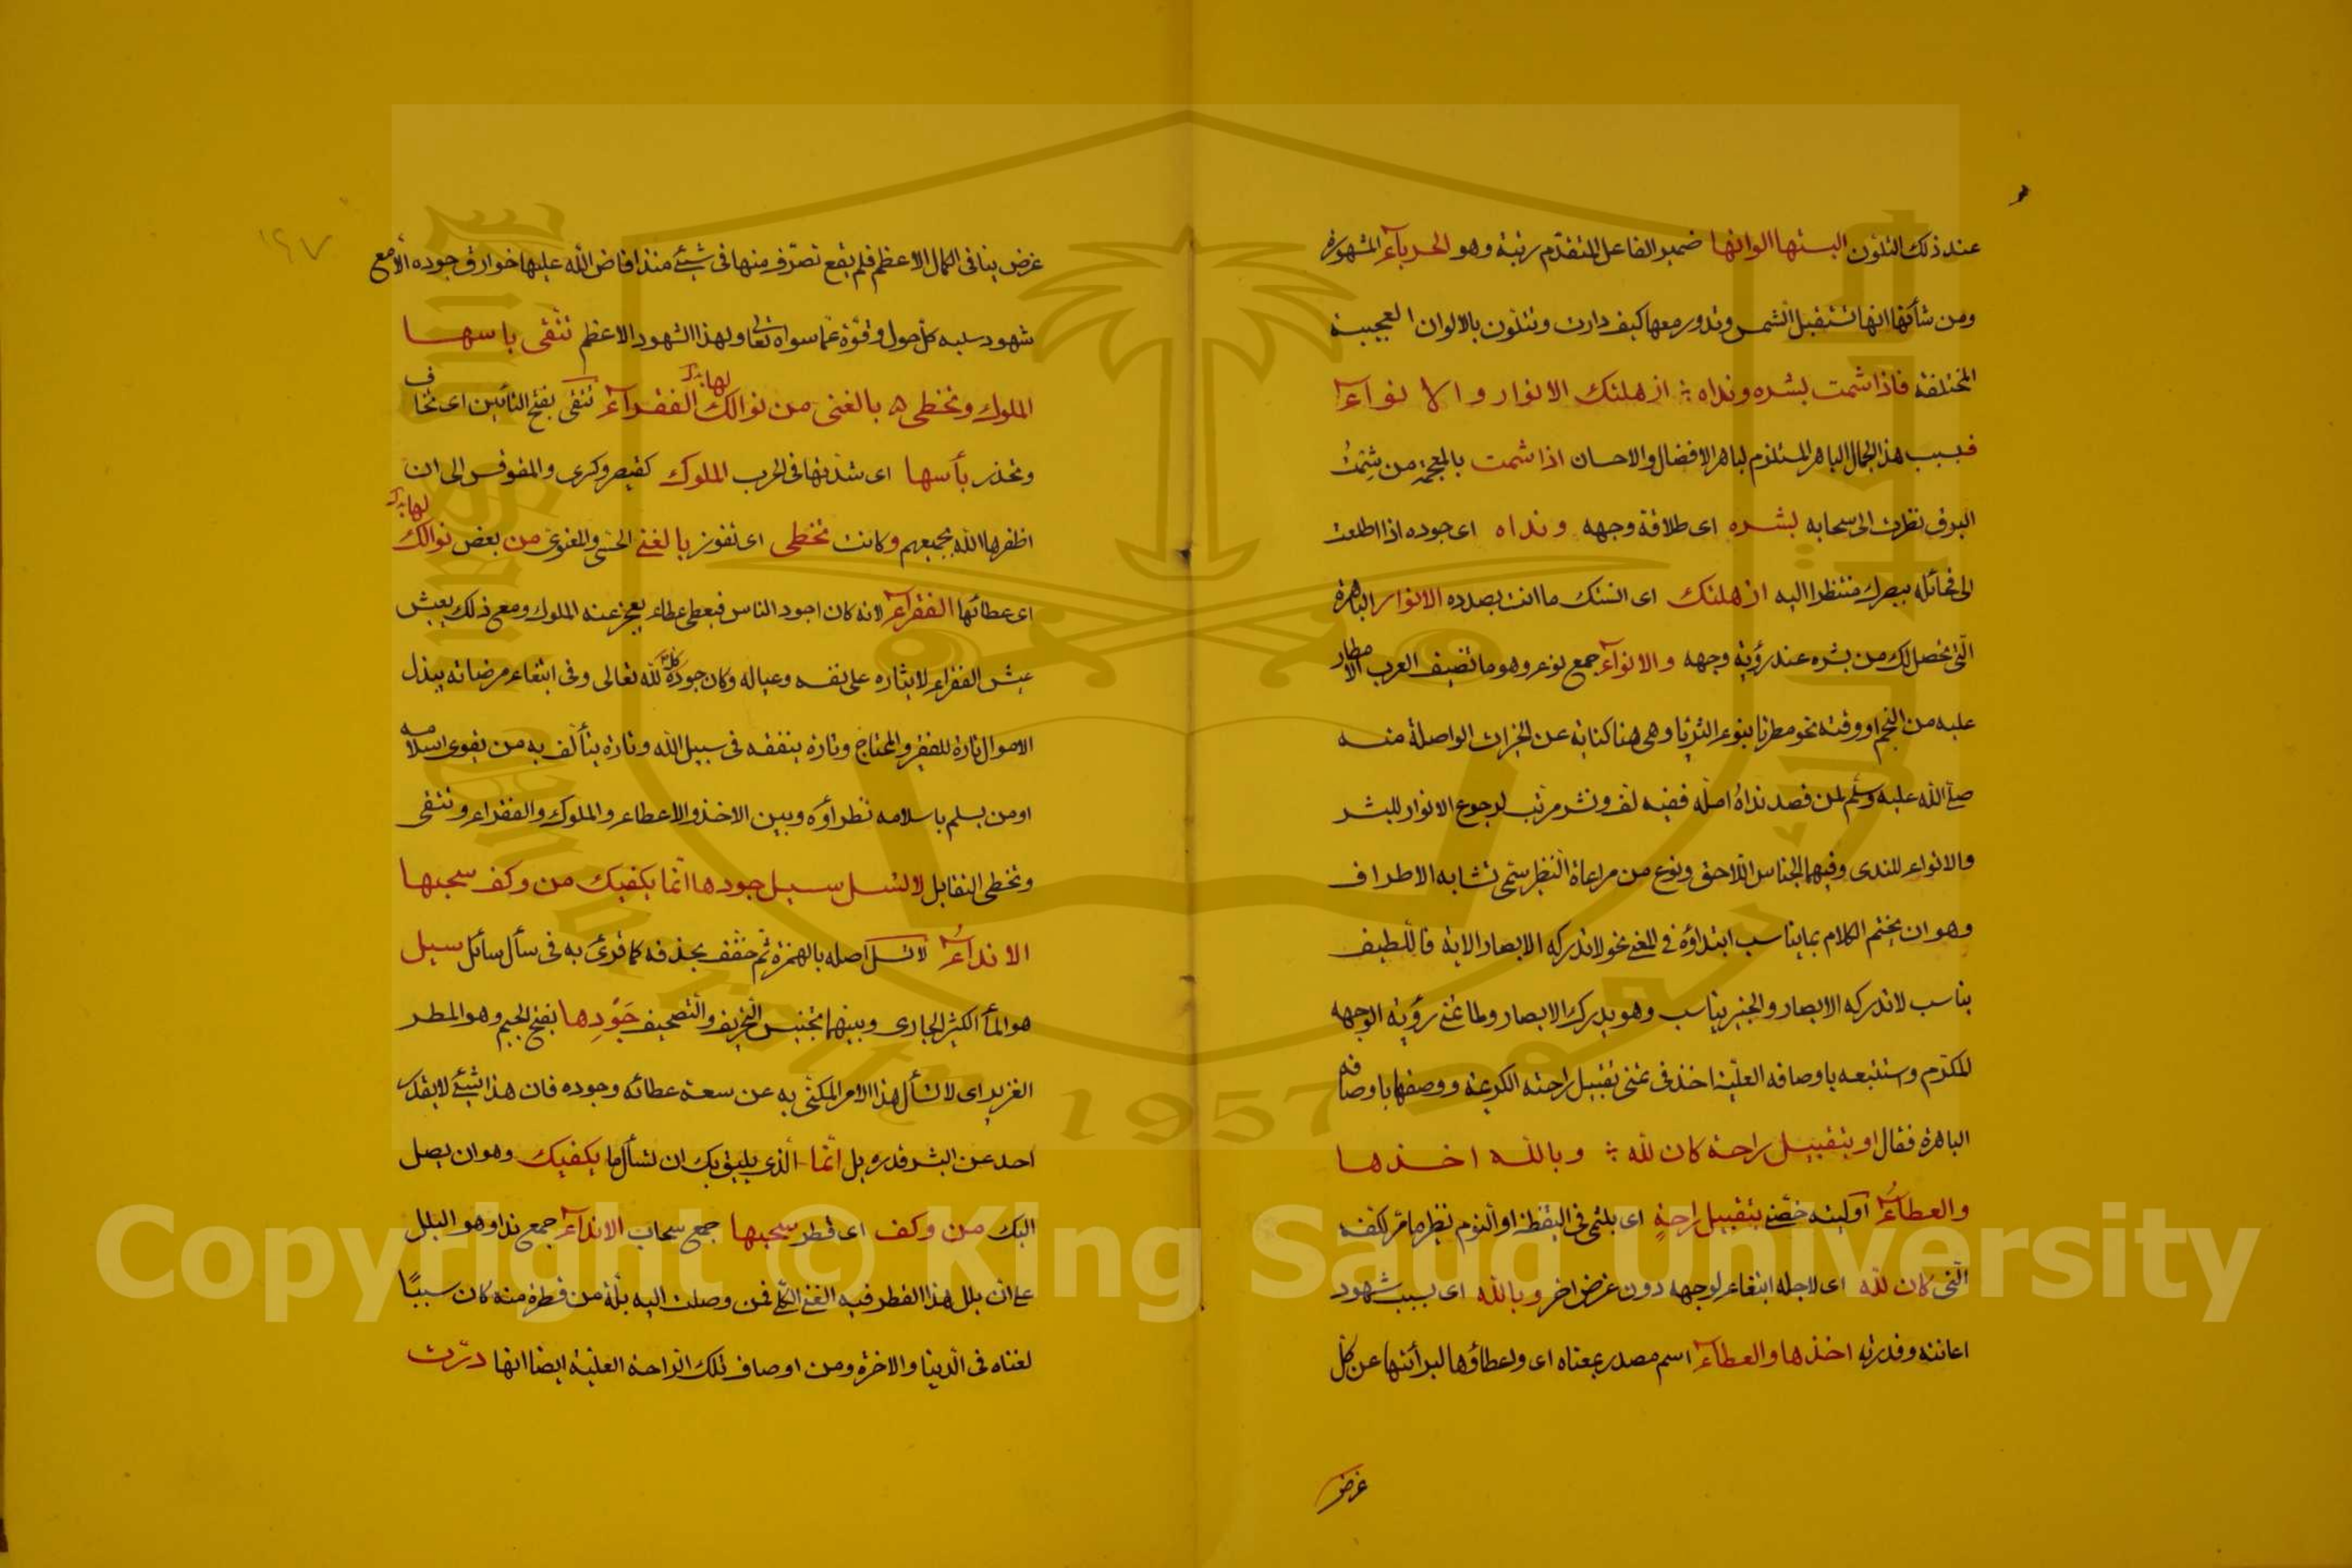 عند ذلك التلون البستها الوانها ضمير الفاعل المتقدّم رتبة وهو الحرباء المشهورة
ومن شأنها انها تستقبل الشمس وتدور معها كيف دارت وتتلون بالالوان العجيبة
المختلفة فاذا شمت بشره ونداه ؛ اذهلتك الانوار والانواء
فبسبب هذا الجمال الباهر المستلزم لباهر الافضال والاحسان اذا شمت بالمعجمة من شِمْتُ
البرق نظرت الى سحابه بشره اى طلاقة وجهه ونداه اى جوده اذا اطلعت
الى مخائله ببصرك منتظرا اليه اذهلتك اى انستك ما انت بصدده الانوار الباهرة
الّتى تحصل لك من بشره عند رؤية وجهه والانواء جمع نوء وهو ما تضيف العرب الامطار
عليه من النجم او وقته نحو مطرنا بنوء الثريا وهى هنا كناية عن الخيرات الواصلة منه
صلّى الله عليه وسلّم لمن قصد نداه امله ففيه لف ونشر مرتب لرجوع الانوار للبشر
والانواء للندى وفيهما الجناس اللاحق ونوع من مراعاة النظير سمّى تشابه الاطراف
وهو ان يختم الكلام بما يناسب ابتداؤه فى المعنى نحو لا تدركه الابصار الاية فاللّطيف
يناسب لا تدركه الابصار والخبير يناسب وهو يدرك الابصار ولما تمنى رؤية الوجه
المكرّم واستتبعه باوصافه العليّة اخذ فى تمنى تقبيل راحته الكريمة ووصفها باوصافه
الباهرة فقال او بتقبيل راحة كان لله ؛ وبالله اخذها
والعطاءُ او ليته خصّنى بتقبيل راحةٍ اى بلثمى فى اليقظة او النوم نظير ما مر لكفه
الّتى كان لله اى لاجله ابتغاء لوجهه دون غرض اخر وبالله اى بسبب شهود
اعانته وقدرته اخذها والعطاء اسم مصدر بمعناه اى واعطاؤها لبرأتها عن كلّ
غرض
غرض ينافى الكمال الاعظم فلم يقع تصرّف منها فى شئ منذ افاض الله عليها خوارق جوده الامع
شهود سلبه كلّ حول وقوّة عمّا سواه تعالى ولهذا الشهود الاعظم تتّقى باسها
الملوك وتخطى ه بالغنى من نوالك الفقراء تتقى بفتح التائين اى تخاف
لها بدل
وتحذر بأسها اى شدتها فى الحرب الملوك كقيصر وكسرى والمقوقس الى ان
اظفرها الله بجميعهم وكانت تحظى اى تفوز بالغنى الحسّى والمعنوىّ من بعض نوالك
لها بدل
اى عطائها الفقراء لانه كان اجود الناس فيعطى عطاء يعجز عنه الملوك ومع ذلك يعيش
عيش الفقراء لايثاره على نفسه وعياله وكان جوده كلّه لله تعالى وفى ابتغاء مرضاته يبذل
الاموال تارة للفقير والمحتاج وتارة ينفقه فى سبيل الله وتارة يتألف به من يقوى اسلامه
او من يسلم باسلامه نظرأوّه وبين الاخذ والاعطاء والملوك والفقراء وتتقى
وتخطى التقابل لا تسل سيل جودها انّما يكفيك من وكف سحبها
الانداءُ لا تسل اصله بالهمزة ثم خفّف بحذفه كما قرئ به فى سأل سائل سيل
هو المأ الكثير الجارى وبينهما تجنيس التحريف والتصحيف جَوْدِها بفتح الجيم وهو المطر
الغزير اى لا تسأل هذا الامر المكنّى به عن سعة عطائه وجوده فان هذا شئ لا يقدر
احد عن البشر قدره بل انّما الّذى يليق بك ان تسأل ما يكفيك وهو ان يصل
اليك من وكف اى قطر سحبها جمع سحاب الانداء جمع ندا وهو البلل
على ان بلل هذا القطر فيه الغنى الكلّى فمن وصلت اليه بلّة من قطرة منه كان سببًا
لغناه فى الدّنيا والاخرة ومن اوصاف تلك الرّاحة العليّة ايضا انها درّت
١٩٧
Copyright © King Saud University
1957